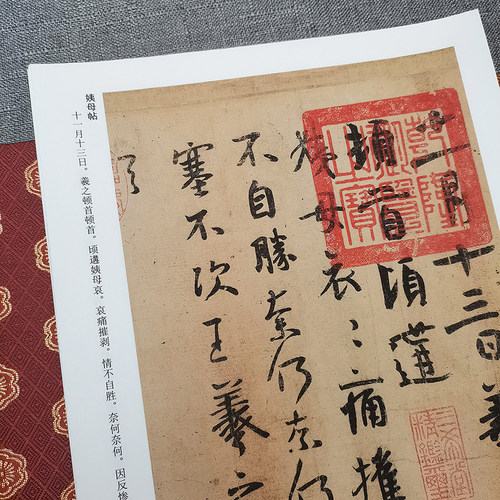 十一月十三日羲
頓首頃遘
姨母哀〻痛摧
不自勝奈何奈何
塞不次王羲之
三希堂
精鑑璽
姨母帖
十一月十三日。羲之顿首顿首。顷遘姨母哀。哀痛摧剥。情不自胜。奈何奈何。因反惨